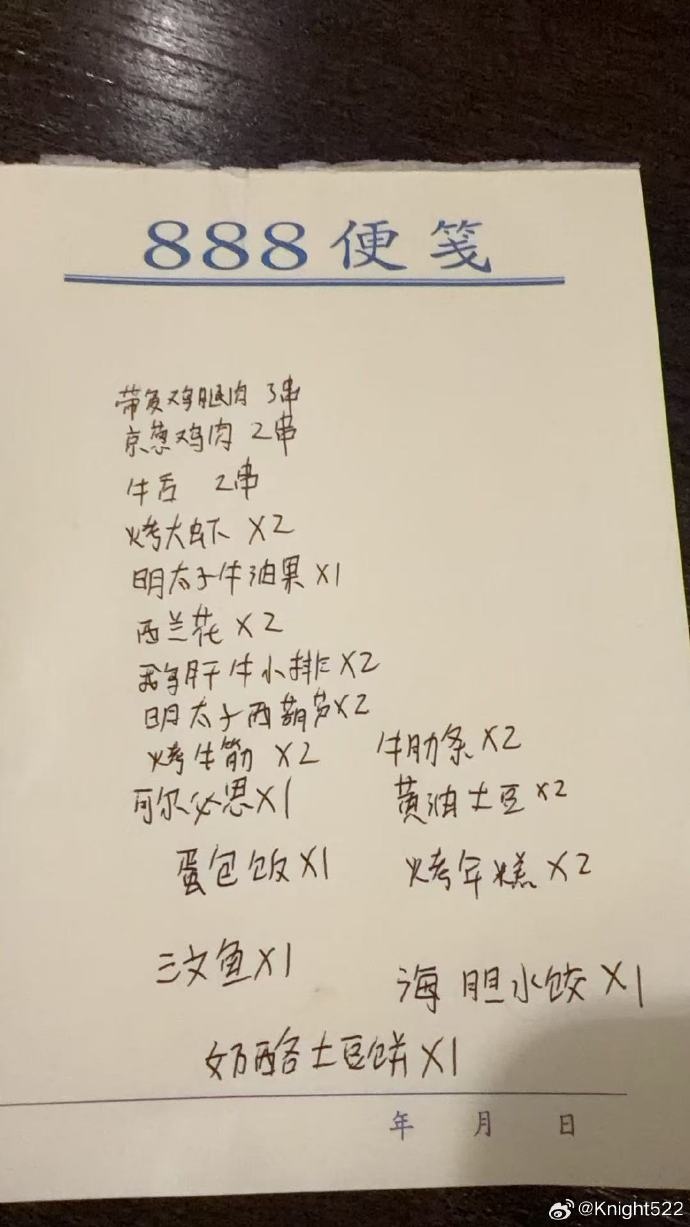 888便笺
带皮鸡腿肉 3串
京葱鸡肉 2串
牛舌 2串
烤大虾 X2
明太子牛油果 X1
西兰花 X2
鹅肝牛小排 X2
明太子西葫芦 X2
烤牛筋 X2 牛肋条 X2
可尔必思 X1 黄油土豆 X2
蛋包饭 X1 烤年糕 X2
三文鱼 X1 海胆水饺 X1
奶酪土豆饼 X1
年 月 日
@Knight522